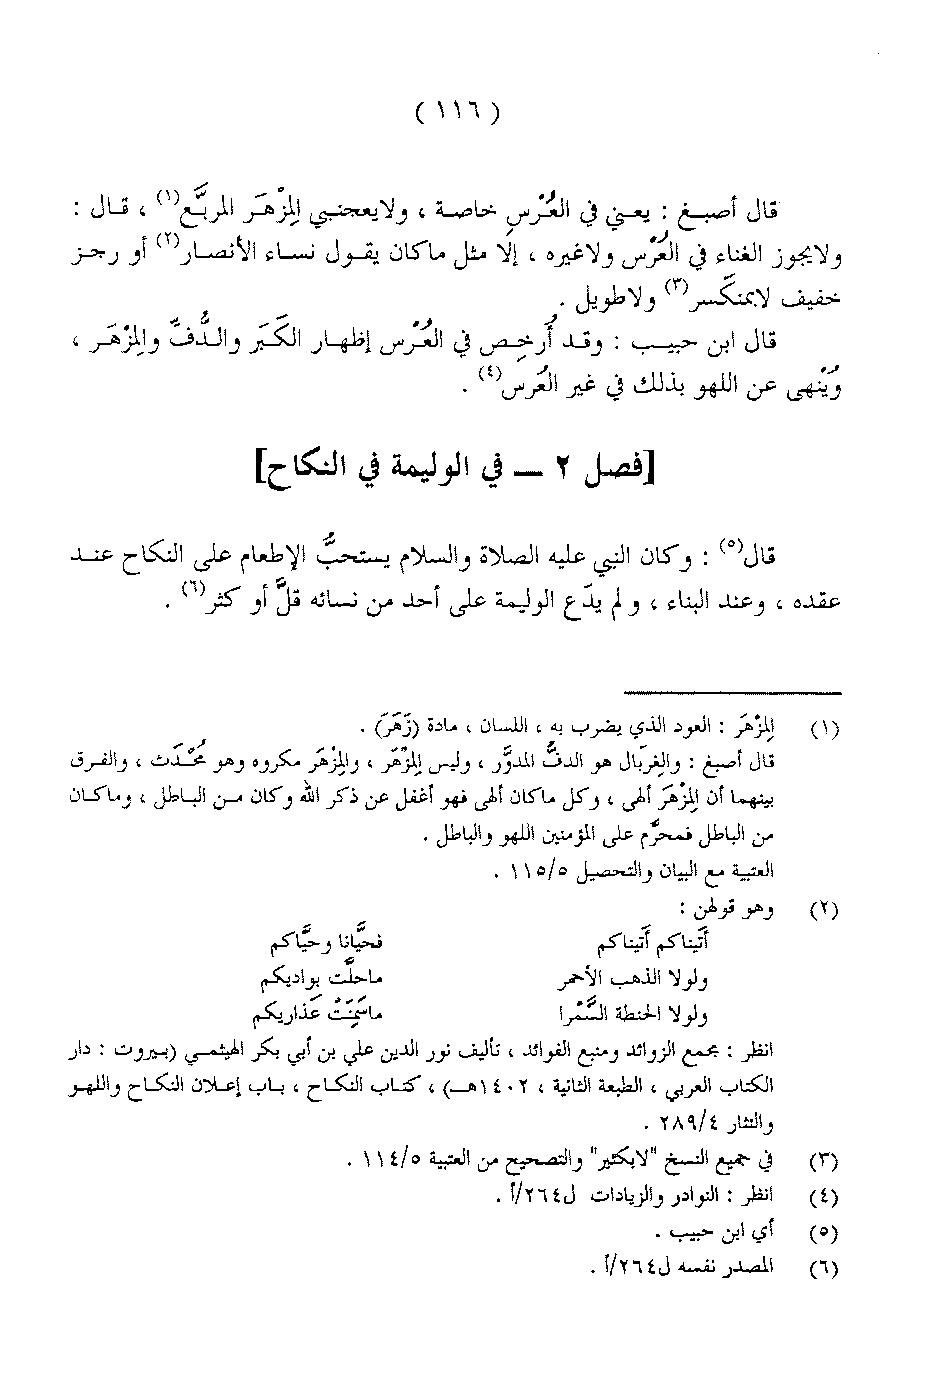 ( ١١٦ )
قال أصبغ : يعني في العُرْسِ خاصة ، ولايعجنبي المِزْهَر المربَّع(١) ، قال :
ولايجوز الغناء في العُرْس ولاغيره ، إلا مثل ماكان يقول نساء الأنصار(٢) أو رجز
خفيف لابمنكَّسر(٣) ولاطويل .
قال ابن حبيب : وقد أُرخِص في العُرْس إظهار الكَبَر والدُّفِّ والمِزْهَر ،
ويُنْهى عن اللهو بذلك في غير العُرْس(٤) .
[فصل ٢ ــ في الوليمة في النكاح]
قال(٥) : وكان النبي عليه الصلاة والسلام يستحبُّ الإطعام على النكاح عند
عقده ، وعند البناء ، و لم يدَع الوليمة على أحد من نسائه قلَّ أو كثر(٦) .
(١) المِزْهَر : العود الذي يضرب به ، اللسان ، مادة (زَهَرَ) .
قال أصبغ : والغربَال هو الدفُّ المدوَّر ، وليس المِزْهَر ، والمِزْهَر مكروه وهو مُحْدَث ، والفرق
بينهما أن المِزْهَر ألهى ، وكل ماكان ألهى فهو أغفل عن ذكر الله وكان من الباطل ، وماكان
من الباطل فمحرَّم على المؤمنين اللهو والباطل .
العتبية مع البيان والتحصيل ١١٥/٥ .
(٢) وهو قولهن :
أتَيناكم أتَيناكم فحيَّانا وحيَّاكم
ولولا الذهب الأحمر ماحلَّت بواديكم
ولولا الحنطة السَّمْرا ماسَمِنَتْ عَذاريكم
انظر : مجمع الزوائد ومنبع الفوائد ، تأليف نور الدين علي بن أبي بكر الهيثمي (بيروت : دار
الكتاب العربي ، الطبعة الثانية ، ١٤٠٢هـ) ، كتاب النكاح ، باب إعلان النكاح واللهو
والنثار ٢٨٩/٤ .
(٣) في جميع النسخ "لابكثير" والتصحيح من العتبية ١١٤/٥ .
(٤) انظر : النوادر والزيادات ل٢٦٤/أ .
(٥) أي ابن حبيب .
(٦) المصدر نفسه ل٢٦٤/أ .